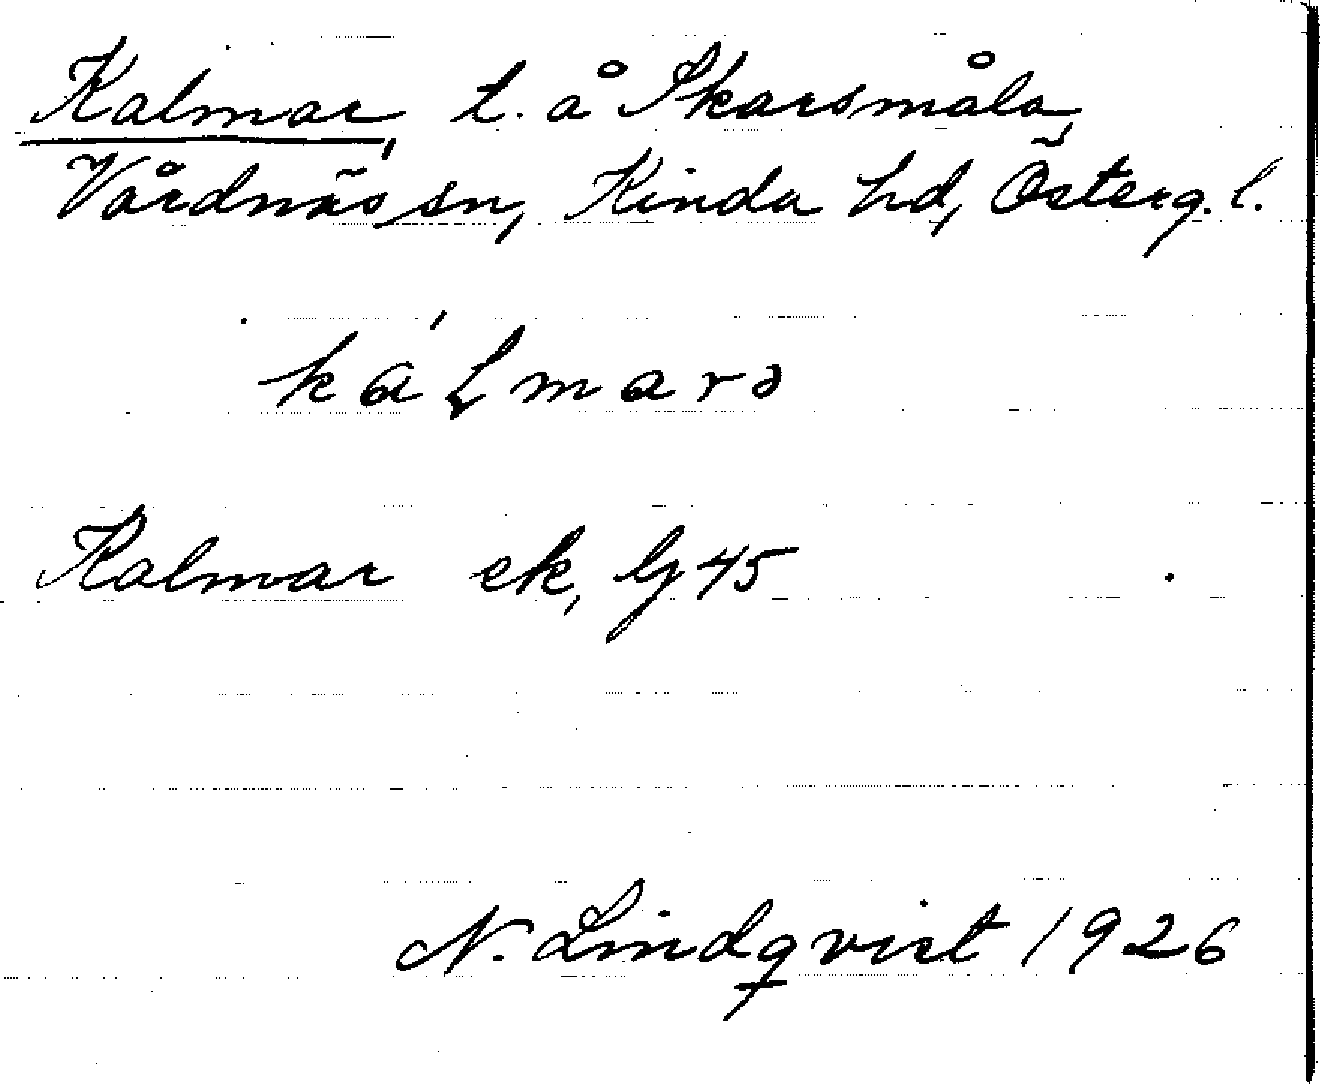 Kalmar, t. å Skarsmåla,
Vårdnäs sn, Kinda hd, Österg. l.
ka´lmarə
Kalmar ek, bg 45
N. Lindqvist 1926